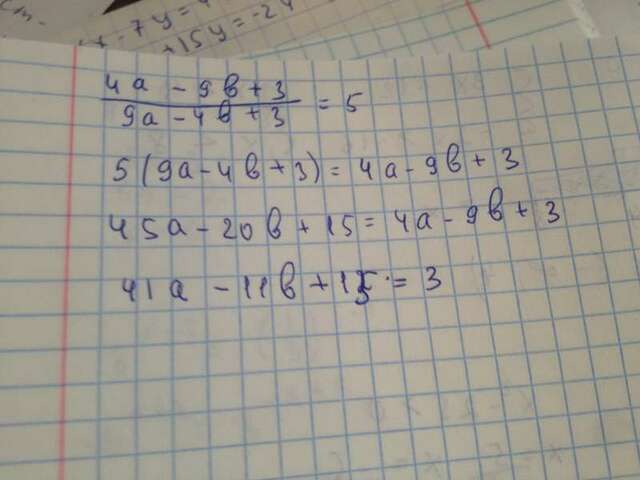 4a - 9b + 3
9a - 4b + 3 = 5
5(9a - 4b + 3) = 4a - 9b + 3
45a - 20b + 15 = 4a - 9b + 3
41a - 11b + 15 = 3